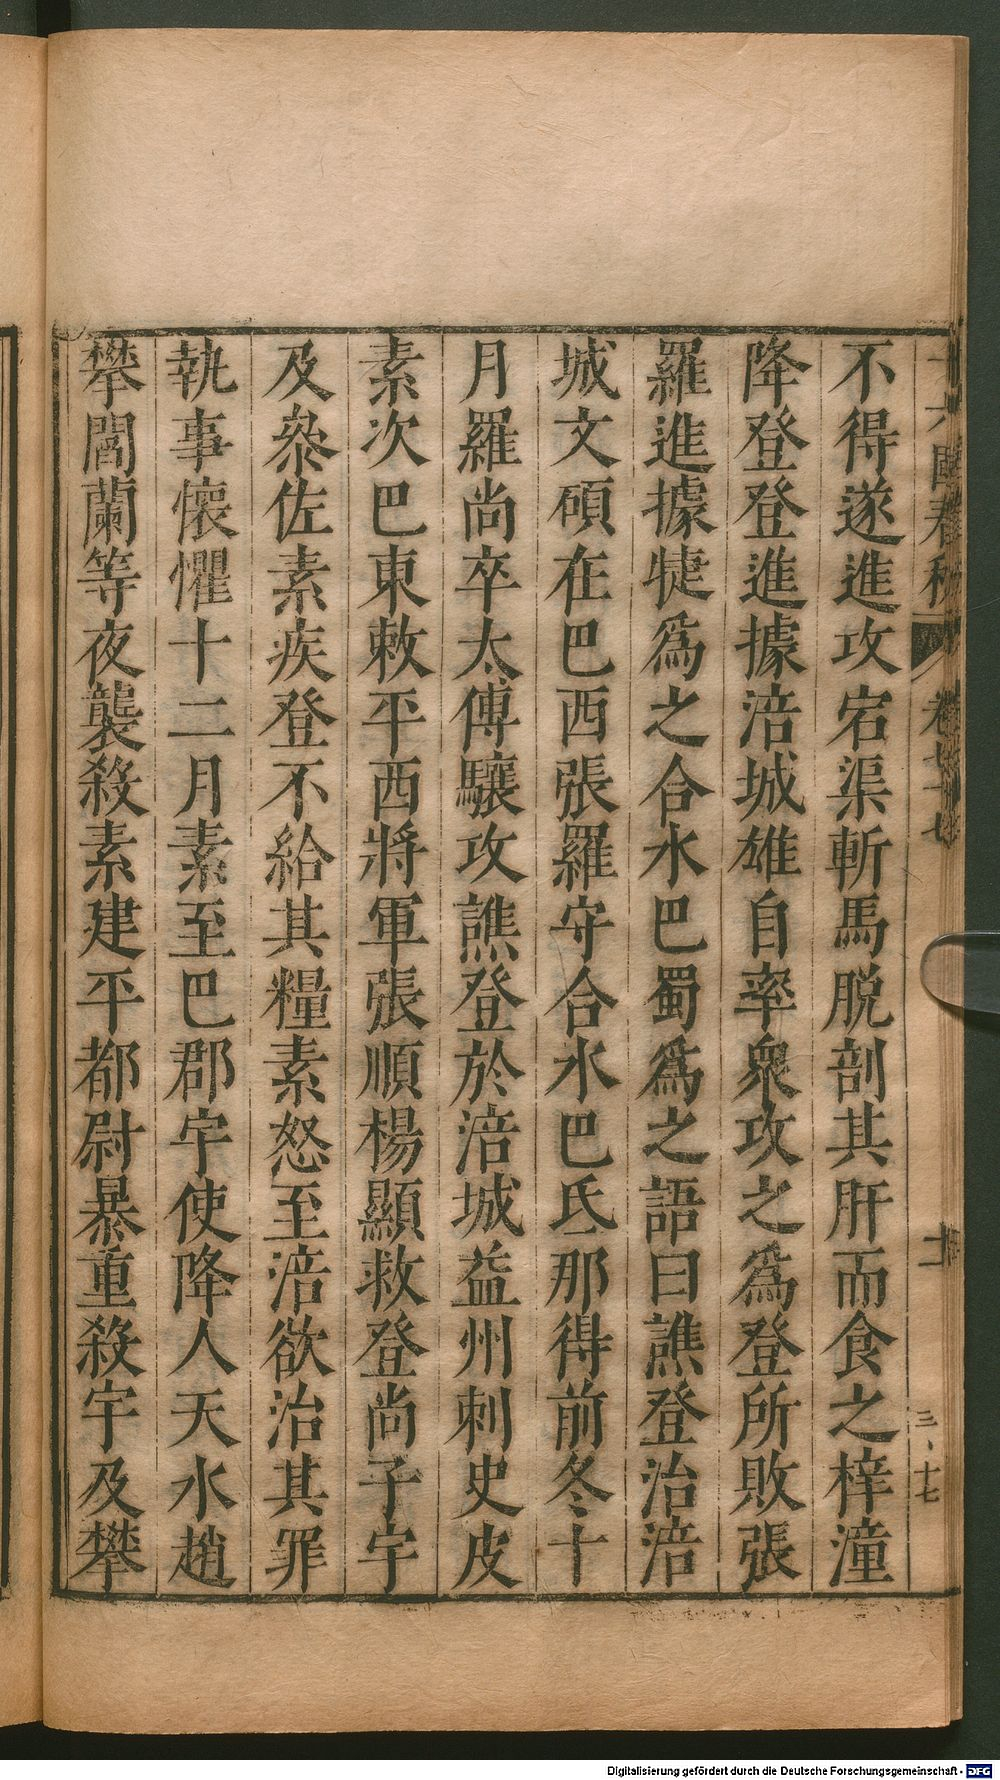 不得遂進攻宕渠斬馬脱剖其肝而食之梓潼
降登登進據涪城雄自率衆攻之爲登所敗張
羅進據犍爲之合水巴蜀爲之語曰譙登治涪
城文碩在巴西張羅守合水巴氐那得前冬十
月羅尚卒太傅驤攻譙登於涪城益州刺史皮
素次巴東敕平西將軍張順楊顯救登尚子宇
及叅佐素疾登不給其糧素怒至涪欲治其罪
執事懷懼十二月素至巴郡宇使降人天水趙
攀閻蘭等夜襲殺素建平都尉暴重殺宇及攀
六國春秋 卷七十七
十
三、十七
Digitalisierung gefördert durch die Deutsche Forschungsgemeinschaft - DFG